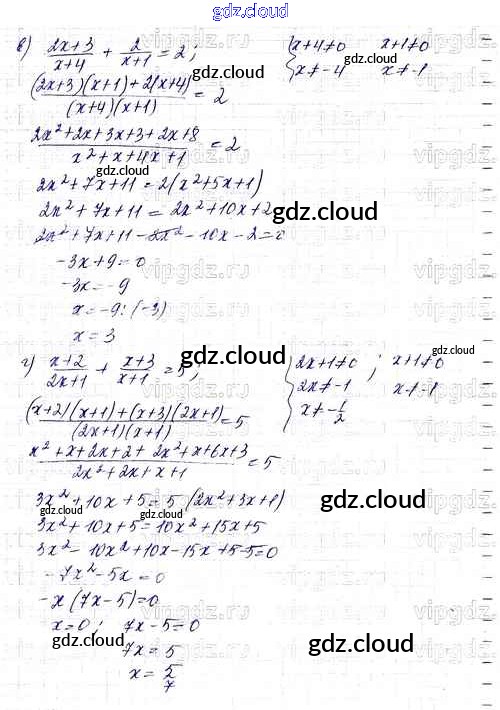 gdz.cloud
в) (2x+3)/(x+4) + 2/(x+1) = 2; { x+4≠0 x+1≠0
x≠-4 x≠-1
gdz.cloud
((2x+3)(x+1)+2(x+4))/((x+4)(x+1)) = 2
(2x²+2x+3x+3+2x+8)/(x²+x+4x+1) = 2
gdz.cloud
2x²+7x+11=2(x²+5x+1)
2x²+7x+11=2x²+10x+2
gdz.cloud
2x²+7x+11-2x²-10x-2=0
-3x+9=0
-3x=-9
x=-9:(-3)
x=3
gdz.cloud
г) (x+2)/(2x+1) + (x+3)/(x+1) = 5; { 2x+1≠0; x+1≠0
2x≠-1 x≠-1
x≠-1/2
gdz.cloud
((x+2)(x+1)+(x+3)(2x+1))/((2x+1)(x+1)) = 5
(x²+x+2x+2+2x²+x+6x+3)/(2x²+2x+x+1) = 5
3x²+10x+5=5(2x²+3x+1)
gdz.cloud
3x²+10x+5=10x²+15x+5
3x²-10x²+10x-15x+5-5=0
-7x²-5x=0
-x(7x-5)=0
x=0; 7x-5=0
gdz.cloud
gdz.cloud
7x=5
x=5/7